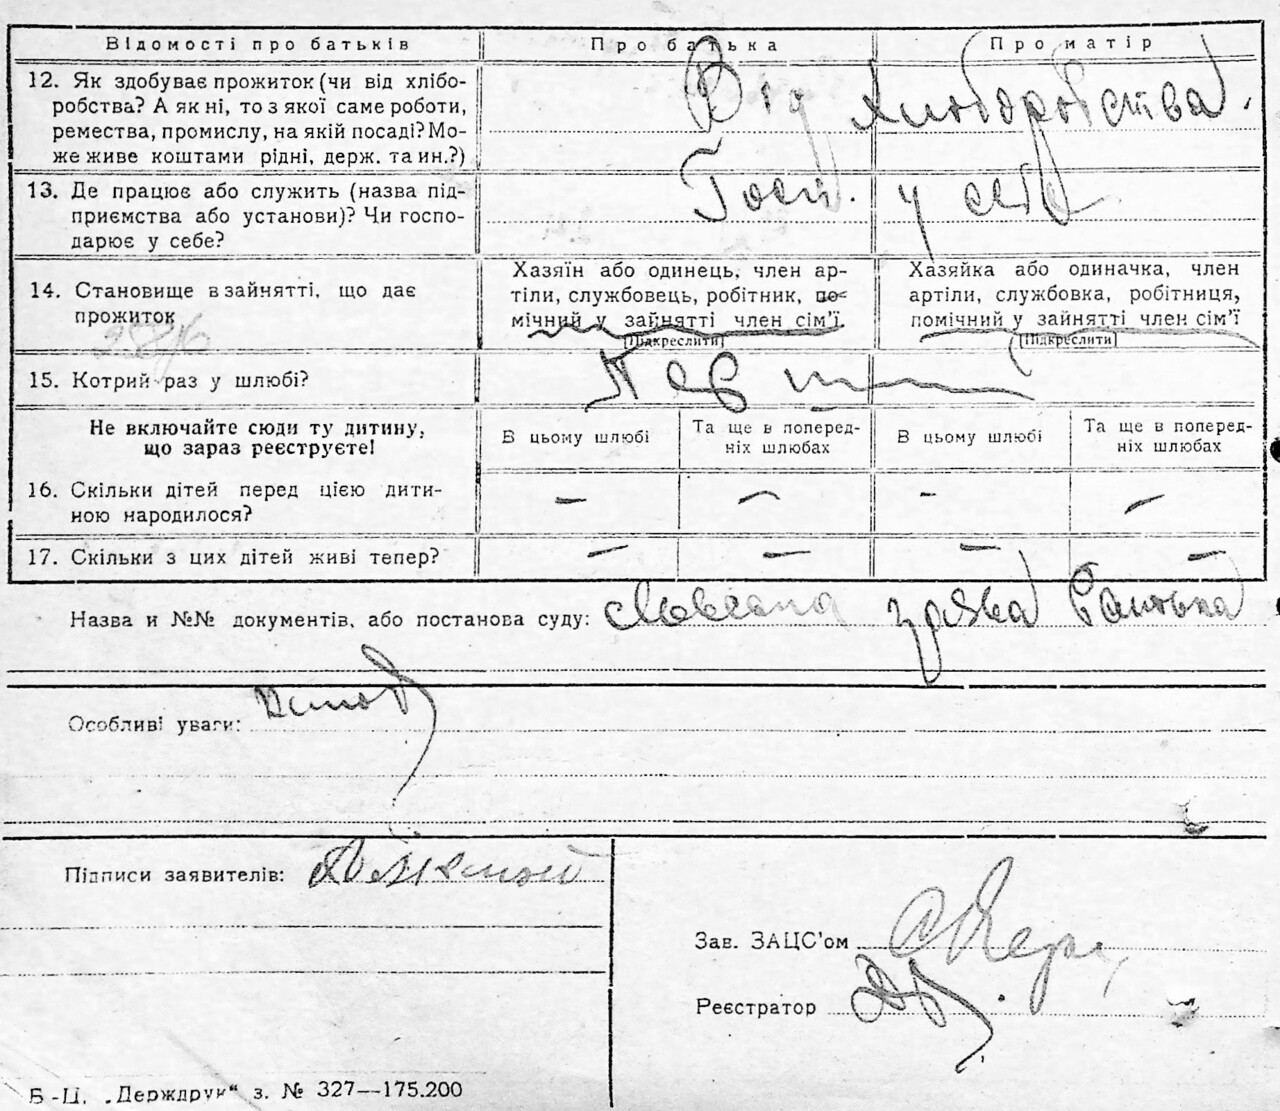 Відомості про батьків
Про батька
Про матір
12. Як здобуває прожиток (чи від хлібо-
робства? А як ні, то з якої саме роботи,
ремества, промислу, на якій посаді? Мо-
же живе коштами рідні, держ. та ин.?)
Від хліборобства.
13. Де працює або служить (назва під-
приємства або установи)? Чи госпо-
дарює у себе?
Госп. у себе
14. Становище в зайнятті, що дає
прожиток
Хазяїн або одинець, член ар-
тіли, службовець, робітник, по-
мічний у зайнятті член сім'ї
(Підкреслити)
Хазяйка або одиначка, член
артіли, службовка, робітниця,
помічний у зайнятті член сім'ї
(Підкреслити)
15. Котрий раз у шлюбі?
Перший
Не включайте сюди ту дитину,
що зараз реєструєте!
В цьому шлюбі
Та ще в поперед-
ніх шлюбах
В цьому шлюбі
Та ще в поперед-
ніх шлюбах
16. Скільки дітей перед цією дити-
ною народилося?
– – – –
17. Скільки з цих дітей живі тепер?
– – – –
Назва и №№ документів, або постанова суду: Словесна заява батька
Особливі уваги:
Підписи заявителів:
Зав. ЗАЦС'ом
Реєстратор
Б-Ц. „Держдрук“ з. № 327—175.200